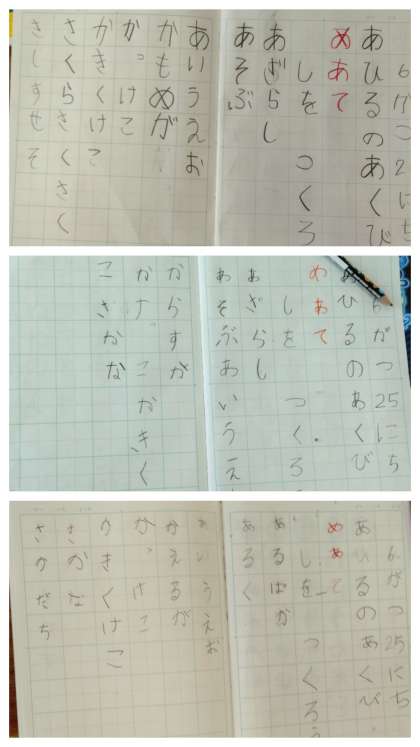 6がつ2にち
あひるのあくび
めあて
しをつくろ
あざらし
あそぶ
あいうえお
かもめが
かきくけこ
さくらさくさく
さしすせそ
がつ25にち
あひるのあくび
めあて
しをつくろ
あざらし
あそぶあいうえ
からすが
こかきく
こさかな
6がつ25にち
あひるのあくび
めあて
しをつくろう
あるく
あいうえお
かえるが
かきくけこ
さかな
さかだち